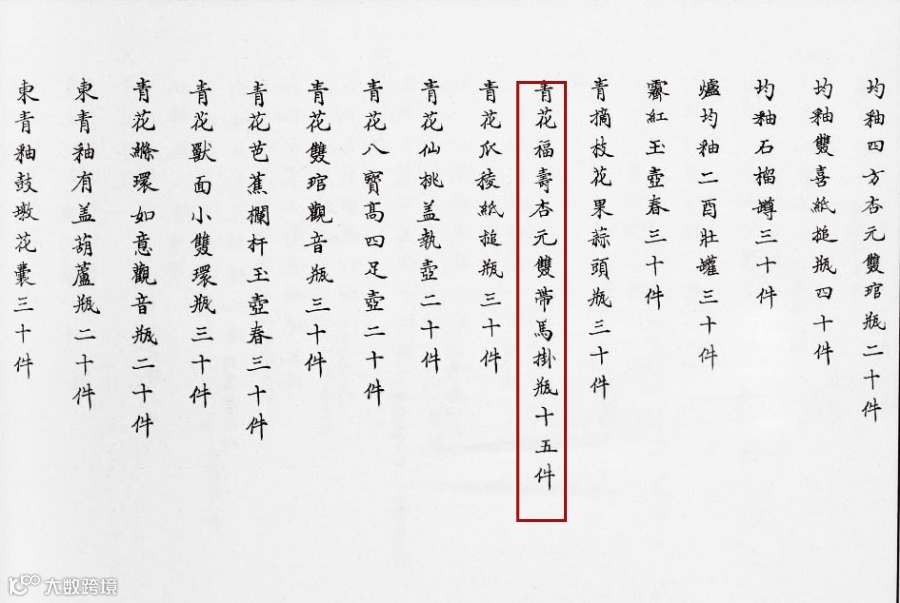 均釉四方杏元雙琯瓶二十件
均釉雙喜紙搥瓶四十件
均釉石榴罇三十件
爐均釉二酉壯罐三十件
霽紅玉壺春三十件
青摘枝花果蒜頭瓶三十件
青花福壽杏元雙蒂馬掛瓶十五件
青花瓜稜紙搥瓶三十件
青花仙桃盖執壺二十件
青花八寶高四足壺二十件
青花雙琯觀音瓶三十件
青花芭蕉欄杆玉壺春三十件
青花獸面小雙環瓶三十件
青花縧環如意觀音瓶二十件
東青釉有盖葫蘆瓶二十件
東青釉鼓墩花囊三十件
大数跨境